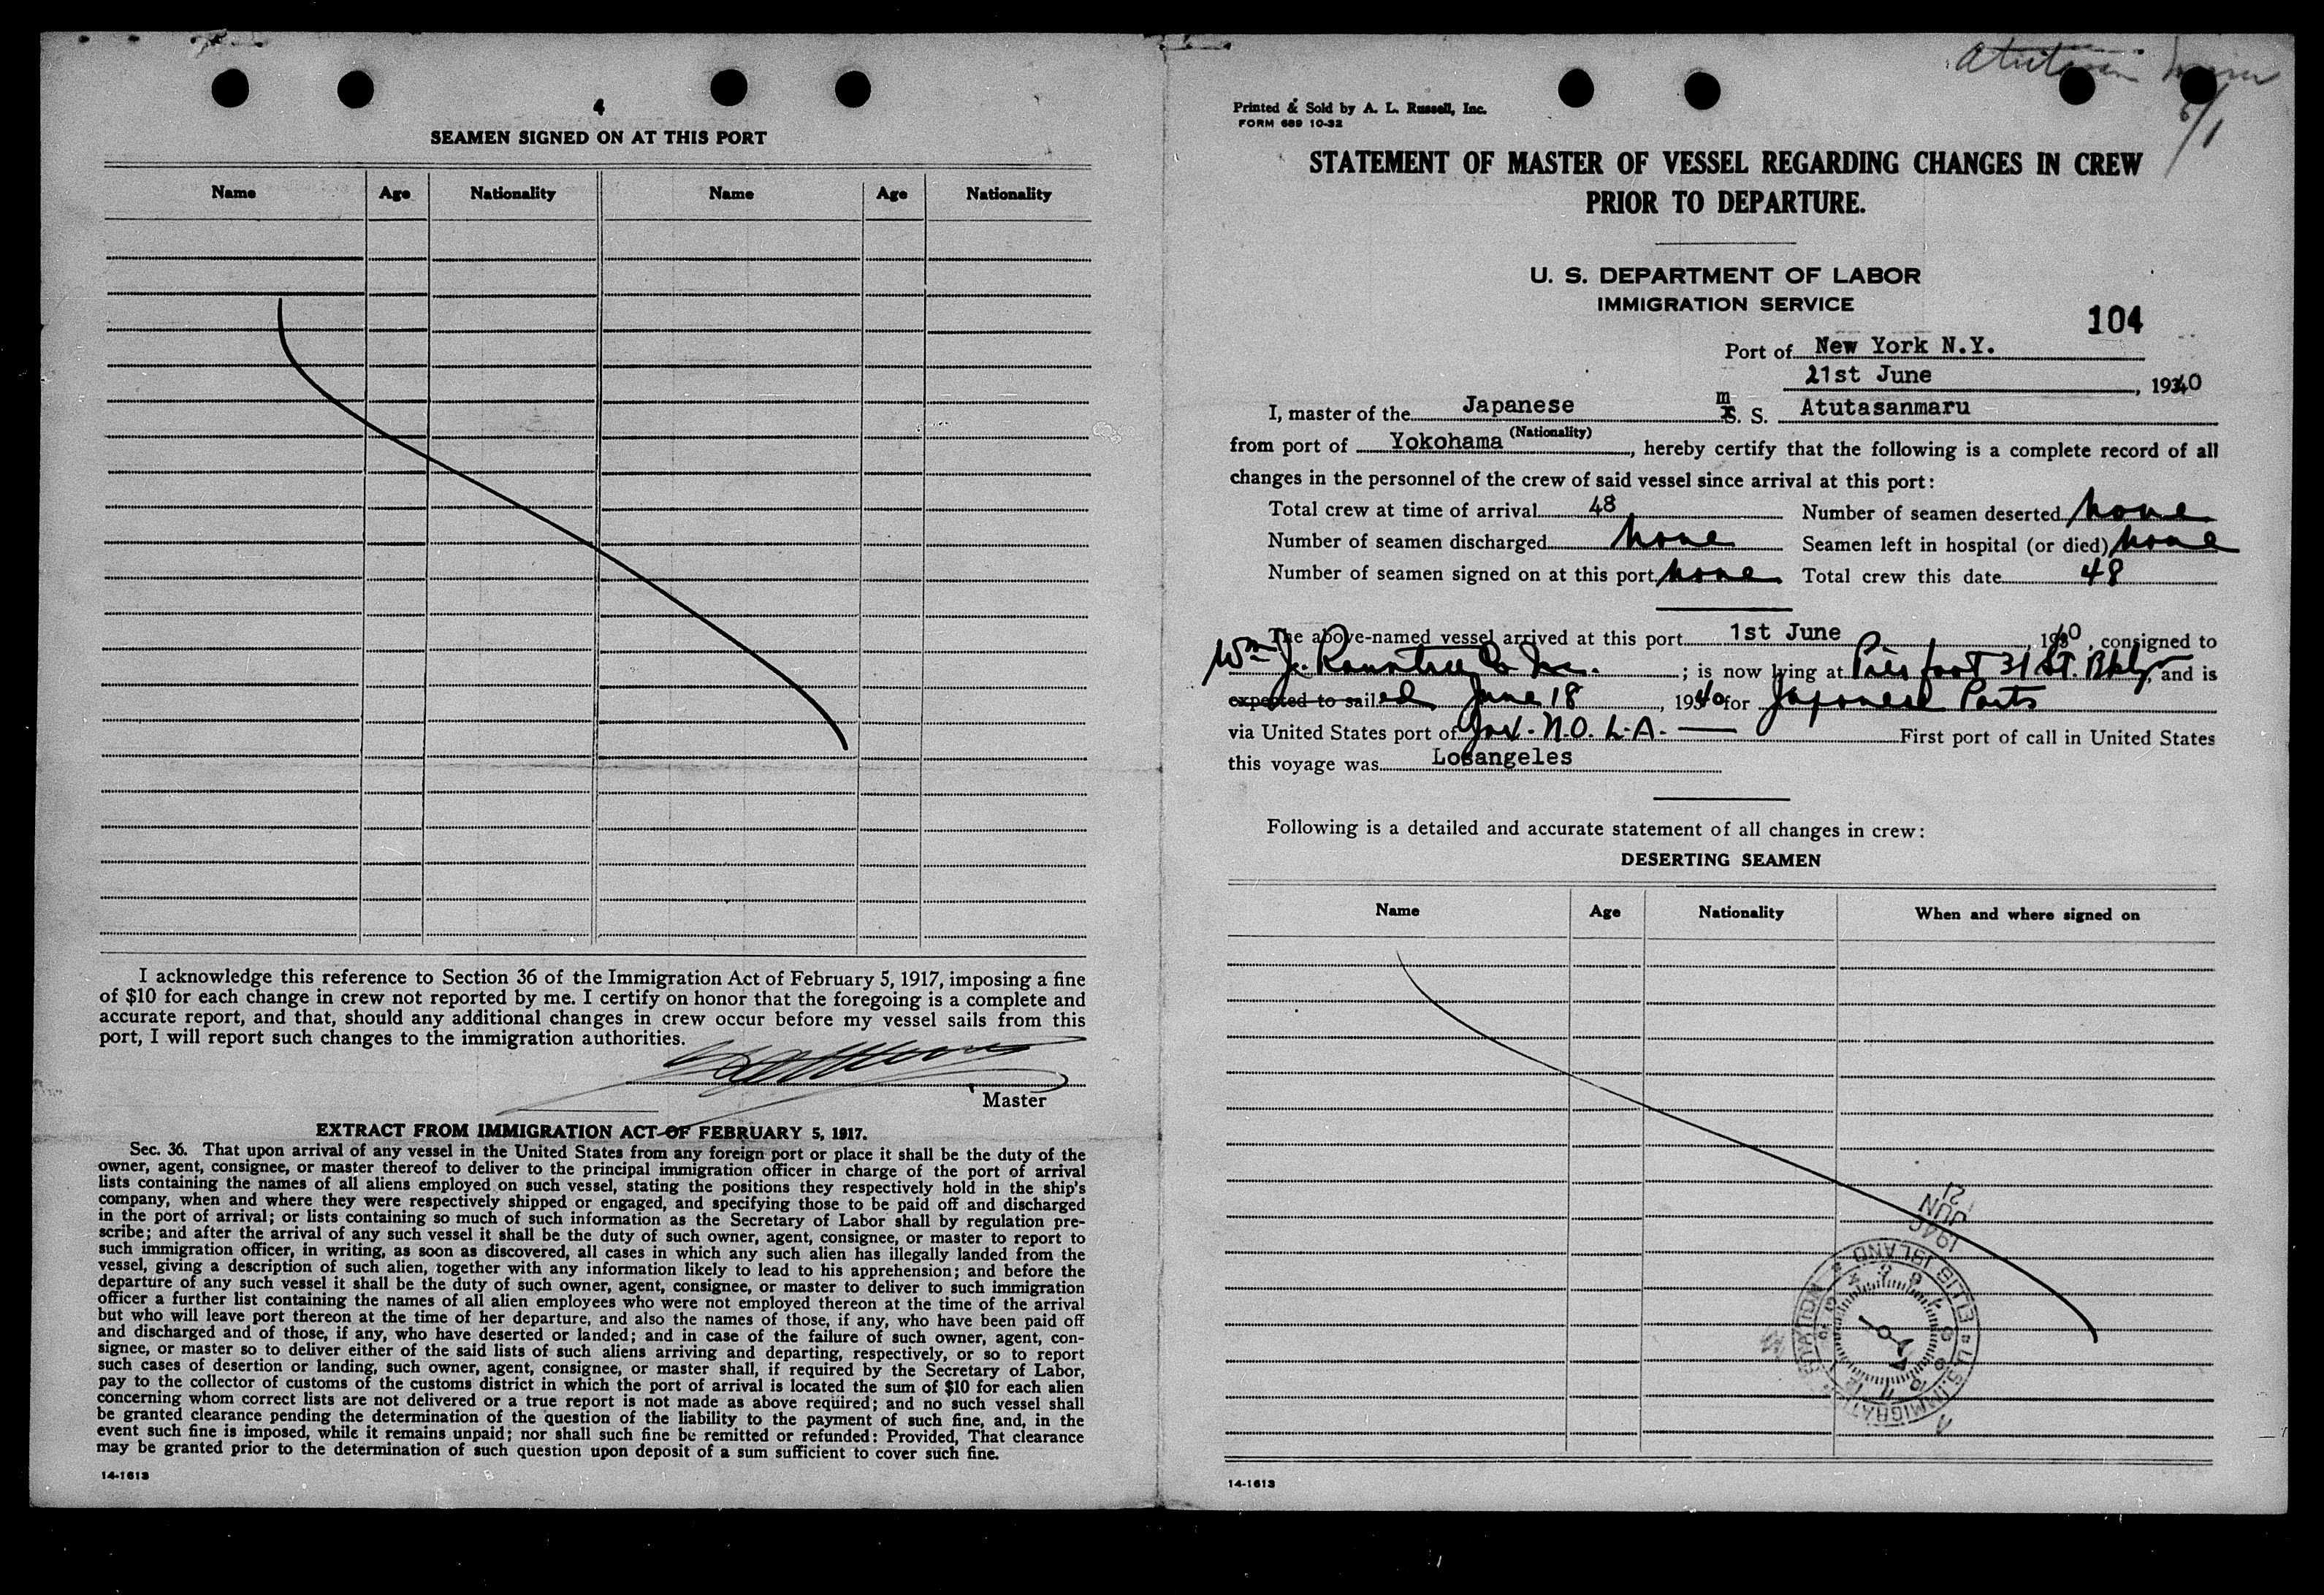 4
SEAMEN SIGNED ON AT THIS PORT
Name Age Nationality Name Age Nationality
I acknowledge this reference to Section 36 of the Immigration Act of February 5, 1917, imposing a fine
of $10 for each change in crew not reported by me. I certify on honor that the foregoing is a complete and
accurate report, and that, should any additional changes in crew occur before my vessel sails from this
port, I will report such changes to the immigration authorities.
Master
EXTRACT FROM IMMIGRATION ACT OF FEBRUARY 5, 1917.
Sec. 36. That upon arrival of any vessel in the United States from any foreign port or place it shall be the duty of the
owner, agent, consignee, or master thereof to deliver to the principal immigration officer in charge of the port of arrival
lists containing the names of all aliens employed on such vessel, stating the positions they respectively hold in the ship's
company, when and where they were respectively shipped or engaged, and specifying those to be paid off and discharged
in the port of arrival; or lists containing so much of such information as the Secretary of Labor shall by regulation pre-
scribe; and after the arrival of any such vessel it shall be the duty of such owner, agent, consignee, or master to report to
such immigration officer, in writing, as soon as discovered, all cases in which any such alien has illegally landed from the
vessel, giving a description of such alien, together with any information likely to lead to his apprehension; and before the
departure of any such vessel it shall be the duty of such owner, agent, consignee, or master to deliver to such immigration
officer a further list containing the names of all alien employees who were not employed thereon at the time of the arrival
but who will leave port thereon at the time of her departure, and also the names of those, if any, who have been paid off
and discharged and of those, if any, who have deserted or landed; and in case of the failure of such owner, agent, con-
signee, or master so to deliver either of the said lists of such aliens arriving and departing, respectively, or so to report
such cases of desertion or landing, such owner, agent, consignee, or master shall, if required by the Secretary of Labor,
pay to the collector of customs of the customs district in which the port of arrival is located the sum of $10 for each alien
concerning whom correct lists are not delivered or a true report is not made as above required; and no such vessel shall
be granted clearance pending the determination of the question of the liability to the payment of such fine, and, in the
event such fine is imposed, while it remains unpaid; nor shall such fine be remitted or refunded: Provided, That clearance
may be granted prior to the determination of such question upon deposit of a sum sufficient to cover such fine.
14-1613
6/1
Printed & Sold by A. L. Russell, Inc.
FORM 689 10-32
STATEMENT OF MASTER OF VESSEL REGARDING CHANGES IN CREW
PRIOR TO DEPARTURE.
U. S. DEPARTMENT OF LABOR
IMMIGRATION SERVICE
104
Port of New York N.Y.
21st June, 1940
I, master of the Japanese m S. S. Atutasanmaru
(Nationality)
from port of Yokohama, hereby certify that the following is a complete record of all
changes in the personnel of the crew of said vessel since arrival at this port:
Total crew at time of arrival 48 Number of seamen deserted none
Number of seamen discharged none Seamen left in hospital (or died) none
Number of seamen signed on at this port none Total crew this date 48
The above-named vessel arrived at this port 1st June, 1940, consigned to
Wm J. Rountree Co Inc.; is now lying at Pier foot 31 St. Bkly, and is
expected to sailed June 18, 1940 for Japanese Ports
via United States port of Jax. N.O. L.A. First port of call in United States
this voyage was Losangeles
Following is a detailed and accurate statement of all changes in crew:
DESERTING SEAMEN
Name Age Nationality When and where signed on
1940 JUN 21
U.S. IMMIGRATION STATION ELLIS ISLAND
14-1613